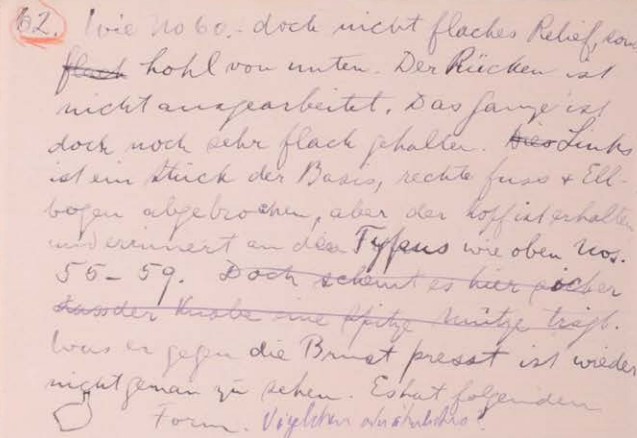 62. Wie No 60. - doch nicht flaches Relief, son
flach hohl von unten. Der Rücken ist
nicht ausgearbeitet. Das Ganze ist
doch noch sehr flach gehalten. Links
ist ein Stück der Basis, rechte fuss + Ell-
bogen abgebrochen, aber der Kopf ist erhalten
und erinnert an den Typus wie oben Nos.
55-59. Doch scheint es hier sicher
dass der Knabe eine Spitze Mütze trägt.
Was er gegen die Brust presst ist wieder
nicht genau zu sehen. Es hat folgenden
Form.